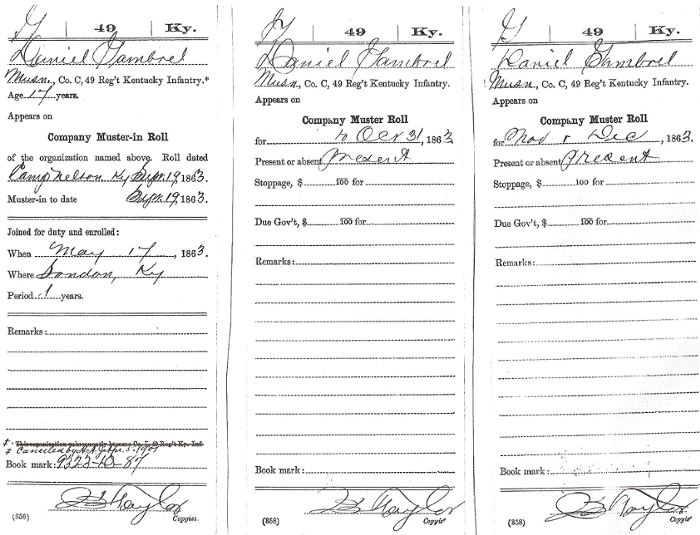 G | 49 | Ky.
Daniel Gambrel
Musn., Co. C, 49 Reg't Kentucky Infantry.*
Age 17 years.
Appears on
Company Muster-in Roll
of the organization named above. Roll dated
Camp Nelson Ky Sept. 19, 1863.
Muster-in to date Sept. 19, 1863.
Joined for duty and enrolled:
When May 17, 1863.
Where London, Ky
Period 1 years.
Remarks:
* This organization subsequently became Co. Reg't Ky. Inf.
Cancelled 1901
Book mark: 9323-B-87
Copyist.
(356)
G | 49 | Ky.
Daniel Gambrel
Musn., Co. C, 49 Reg't Kentucky Infantry.
Appears on
Company Muster Roll
for to Oct 31, 1863.
Present or absent Present
Stoppage, $ 100 for
Due Gov't, $ 100 for
Remarks:
Book mark:
Copyist
(358)
G | 49 | Ky.
Daniel Gambrel
Musn., Co. C, 49 Reg't Kentucky Infantry.
Appears on
Company Muster Roll
for Nov & Dec, 1863.
Present or absent Present
Stoppage, $ 100 for
Due Gov't, $ 100 for
Remarks:
Book mark:
Copyist
(358)